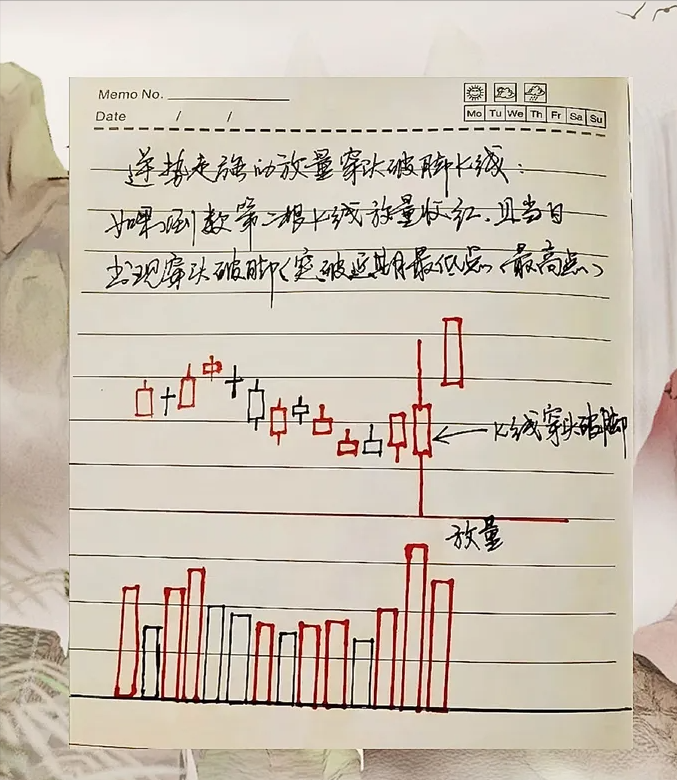 Memo No.
Date / /
Mo Tu We Th Fr Sa Su
逆势走强的放量穿头破脚K线：
如果倒数第二根K线放量收红，且当日
出现穿头破脚（突破近期最低点（最高点）
K线穿头破脚
放量